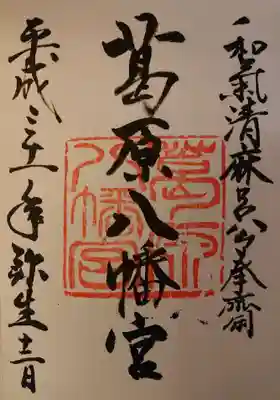 和氣清麻呂公奉齋
葛原八幡宮
平成三十一年弥生十二日
葛原八幡宮